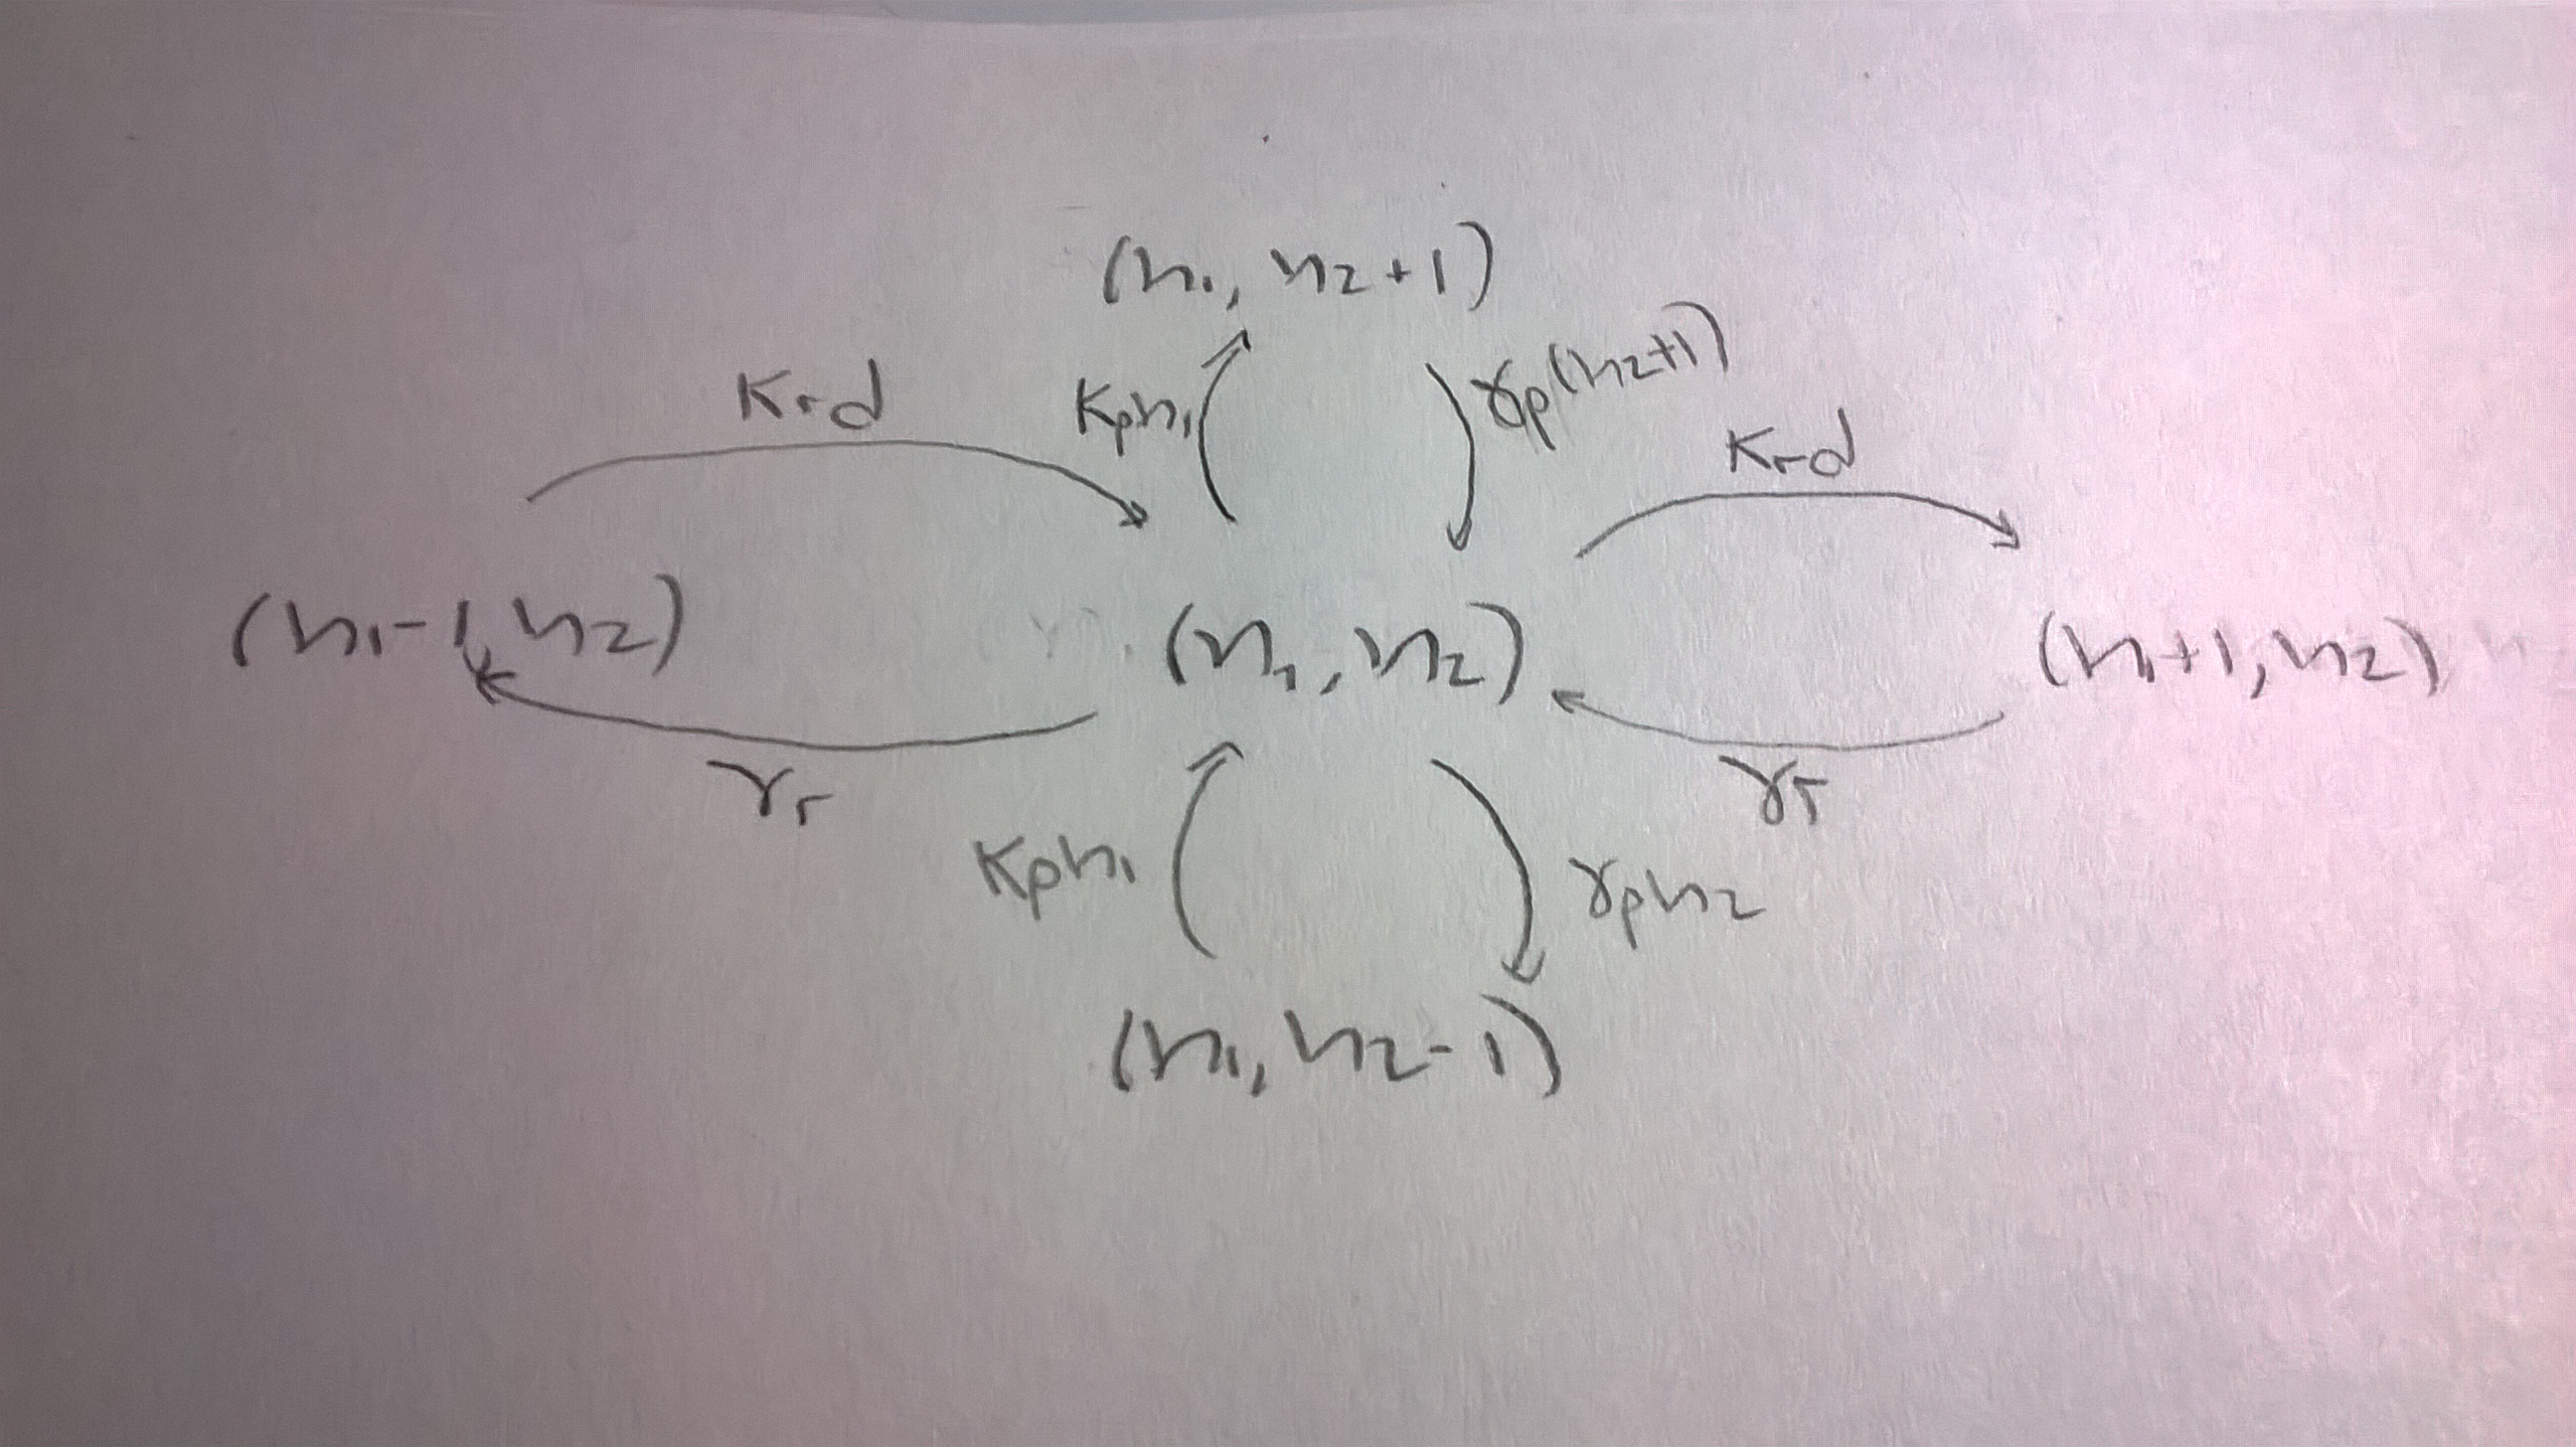 (n₁, n₂+1)
Kᵣd
Kₚn₁
γₚ(n₂+1)
Kᵣd
(n₁-1, n₂)
(n₁, n₂)
(n₁+1, n₂)
γᵣ
γᵣ
Kₚn₁
γₚn₂
(n₁, n₂-1)